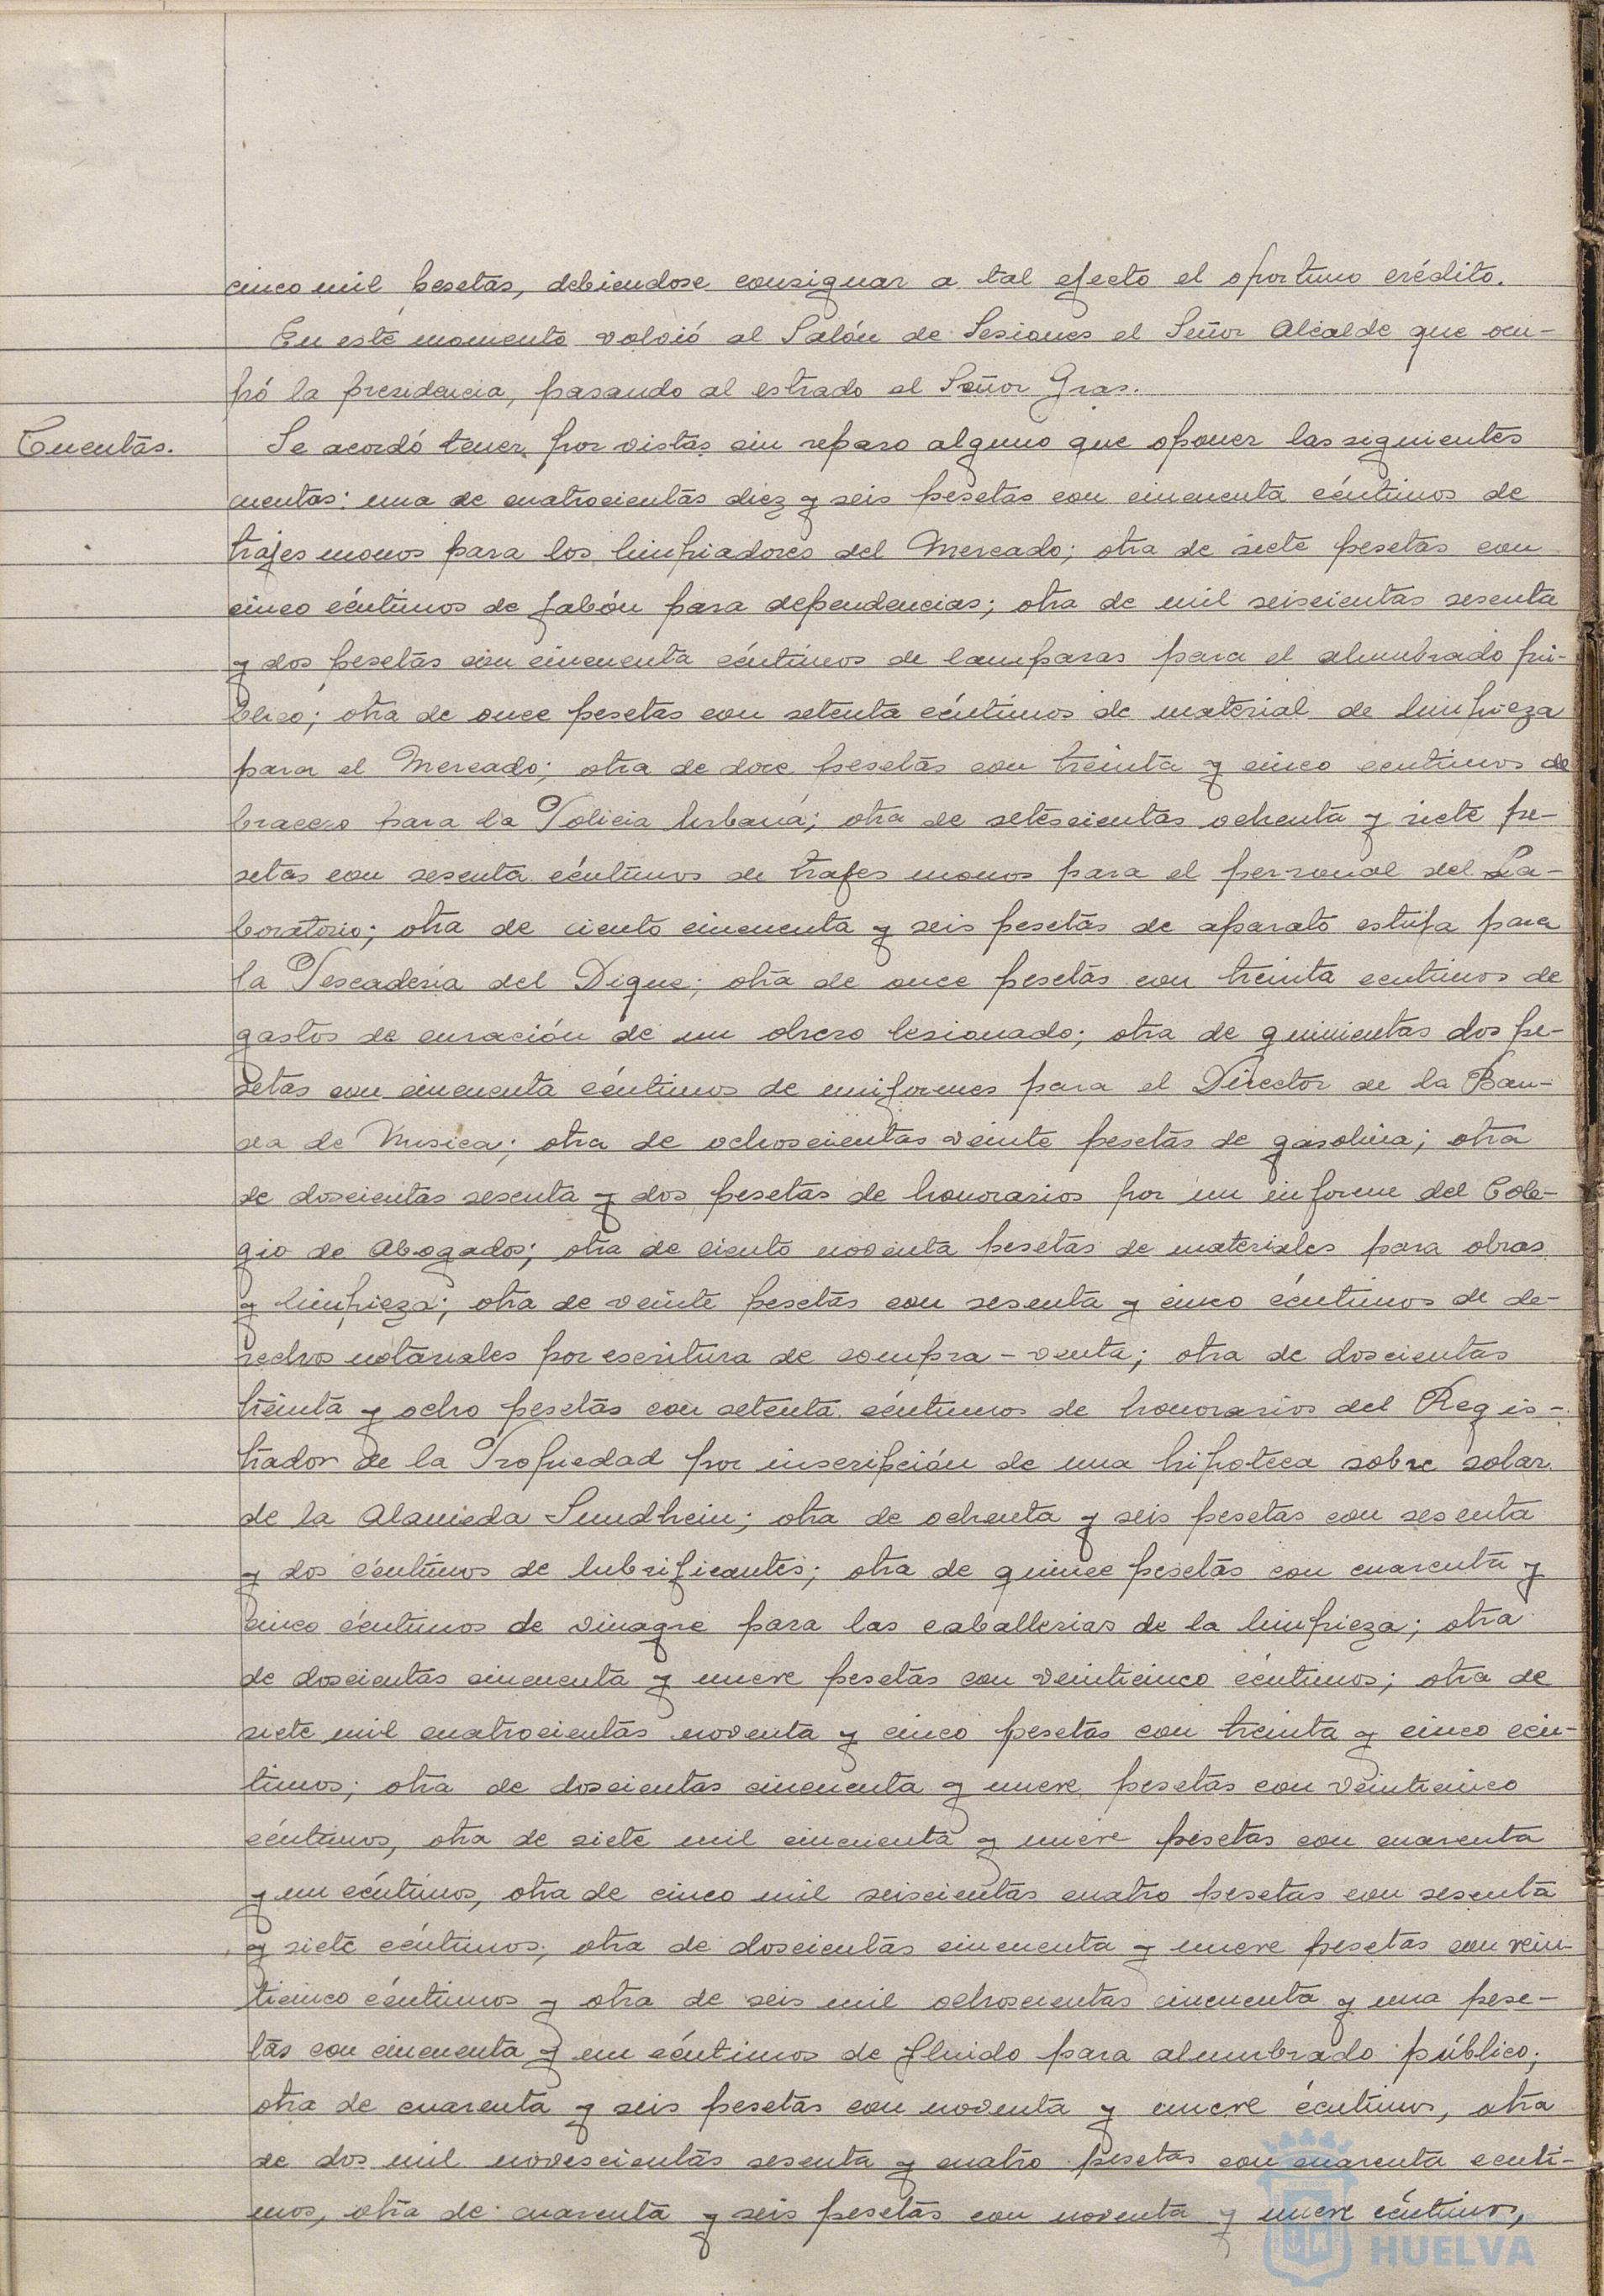 cinco mil pesetas, debiendose consignar a tal efecto el oportuno crédito.
En este momento volvió al Salón de Sesiones el Señor Alcalde que ocu-
pó la presidencia, pasando al estrado el Señor Gras.
Cuentas.
Se acordó tener por vistas sin reparo alguno que oponer las siguientes
cuentas: una de cuatrocientas diez y seis pesetas con cincuenta céntimos de
trajes monos para los limpiadores del Mercado; otra de siete pesetas con
cinco céntimos de jabón para dependencias; otra de mil seiscientas sesenta
y dos pesetas con cincuenta céntimos de lamparas para el alumbrado pú-
blico; otra de once pesetas con setenta céntimos de material de limpieza
para el Mercado; otra de doce pesetas con treinta y cinco centimos de
bracero para la Policia Urbana; otra de setescientas ochenta y siete pe-
setas con sesenta céntimos de trajes monos para el personal del La-
boratorio; otra de ciento cincuenta y seis pesetas de aparato estufa para
la Pescadería del Dique; otra de once pesetas con treinta centimos de
gastos de curación de un obrero lesionado; otra de quinientas dos pe-
setas con cincuenta céntimos de uniformes para el Director de la Ban-
da de Musica; otra de ochoscientas veinte pesetas de gasolina; otra
de doscientas sesenta y dos pesetas de honorarios por un informe del Cole-
gio de Abogados; otra de ciento noventa pesetas de materiales para obras
y limpieza; otra de veinte pesetas con sesenta y cinco céntimos de de-
rechos notariales por escritura de compra-venta; otra de doscientas
treinta y ocho pesetas con setenta céntimos de honorarios del Regis-
trador de la Propiedad por inscripción de una hipoteca sobre solar
de la Alameda Sundhein; otra de ochenta y seis pesetas con sesenta
y dos céntimos de lubrificantes; otra de quince pesetas con cuarenta y
cinco céntimos de vinagre para las caballerias de la limpieza; otra
de doscientas cincuenta y nueve pesetas con veinticinco céntimos; otra de
siete mil cuatrocientas noventa y cinco pesetas con treinta y cinco cén-
timos; otra de doscientas cincuenta y nueve pesetas con veinticinco
céntimos, otra de siete mil cincuenta y nueve pesetas con cuarenta
y un céntimos, otra de cinco mil seiscientas cuatro pesetas con sesenta
y siete céntimos; otra de doscientas cincuenta y nueve pesetas con vein-
ticinco céntimos y otra de seis mil ochoscientas cincuenta y una pese-
tas con cincuenta y un céntimos de fluido para alumbrado público;
otra de cuarenta y seis pesetas con noventa y nueve céntimos, otra
de dos mil novescientas sesenta y cuatro pesetas con cuarenta centi-
mos, otra de cuarenta y seis pesetas con noventa y nueve céntimos,
HUELVA